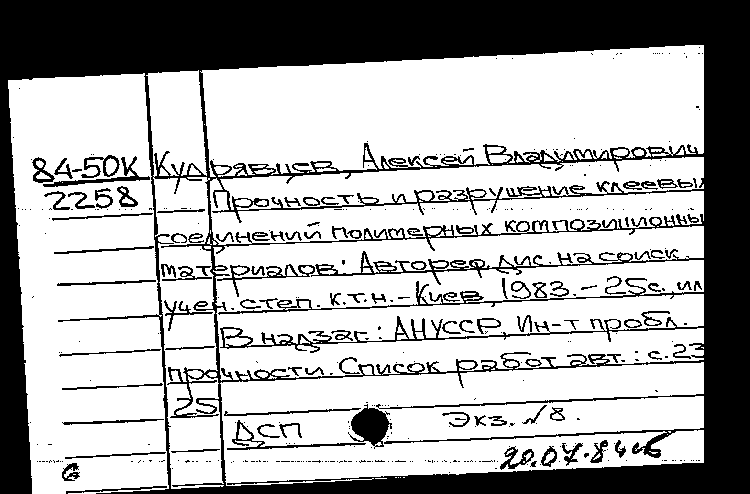 84-50К Кудрявцев, Алексей Владимирович
2258 Прочность и разрушение клеевы
соединений полимерных композиционны
материалов: Автореф. дис. на соиск.
учен. степ. к.т.н. - Киев, 1983. - 25с., ил
В надзаг.: АНУССР, Ин-т пробл.
прочности. Список работ авт.: с. 23
25.
ДСП Экз. №8.
20.07.84
G